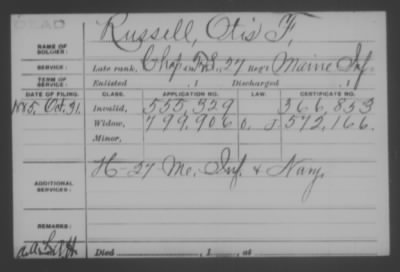 DEAD
Russell, Otis F,
NAME OF SOLDIER:
SERVICE: Late rank, Chap F.S., 27 Reg't Maine Inf.
TERM OF SERVICE: Enlisted , 1 Discharged , 1
DATE OF FILING. CLASS. APPLICATION NO. LAW. CERTIFICATE NO.
1885, Oct. 31. Invalid, 555,329 366,853
Widow, 799,906 O. J 572,166.
Minor,
H-27 Me. Inf. & Navy,
ADDITIONAL SERVICES:
REMARKS:
Died , 1 , at